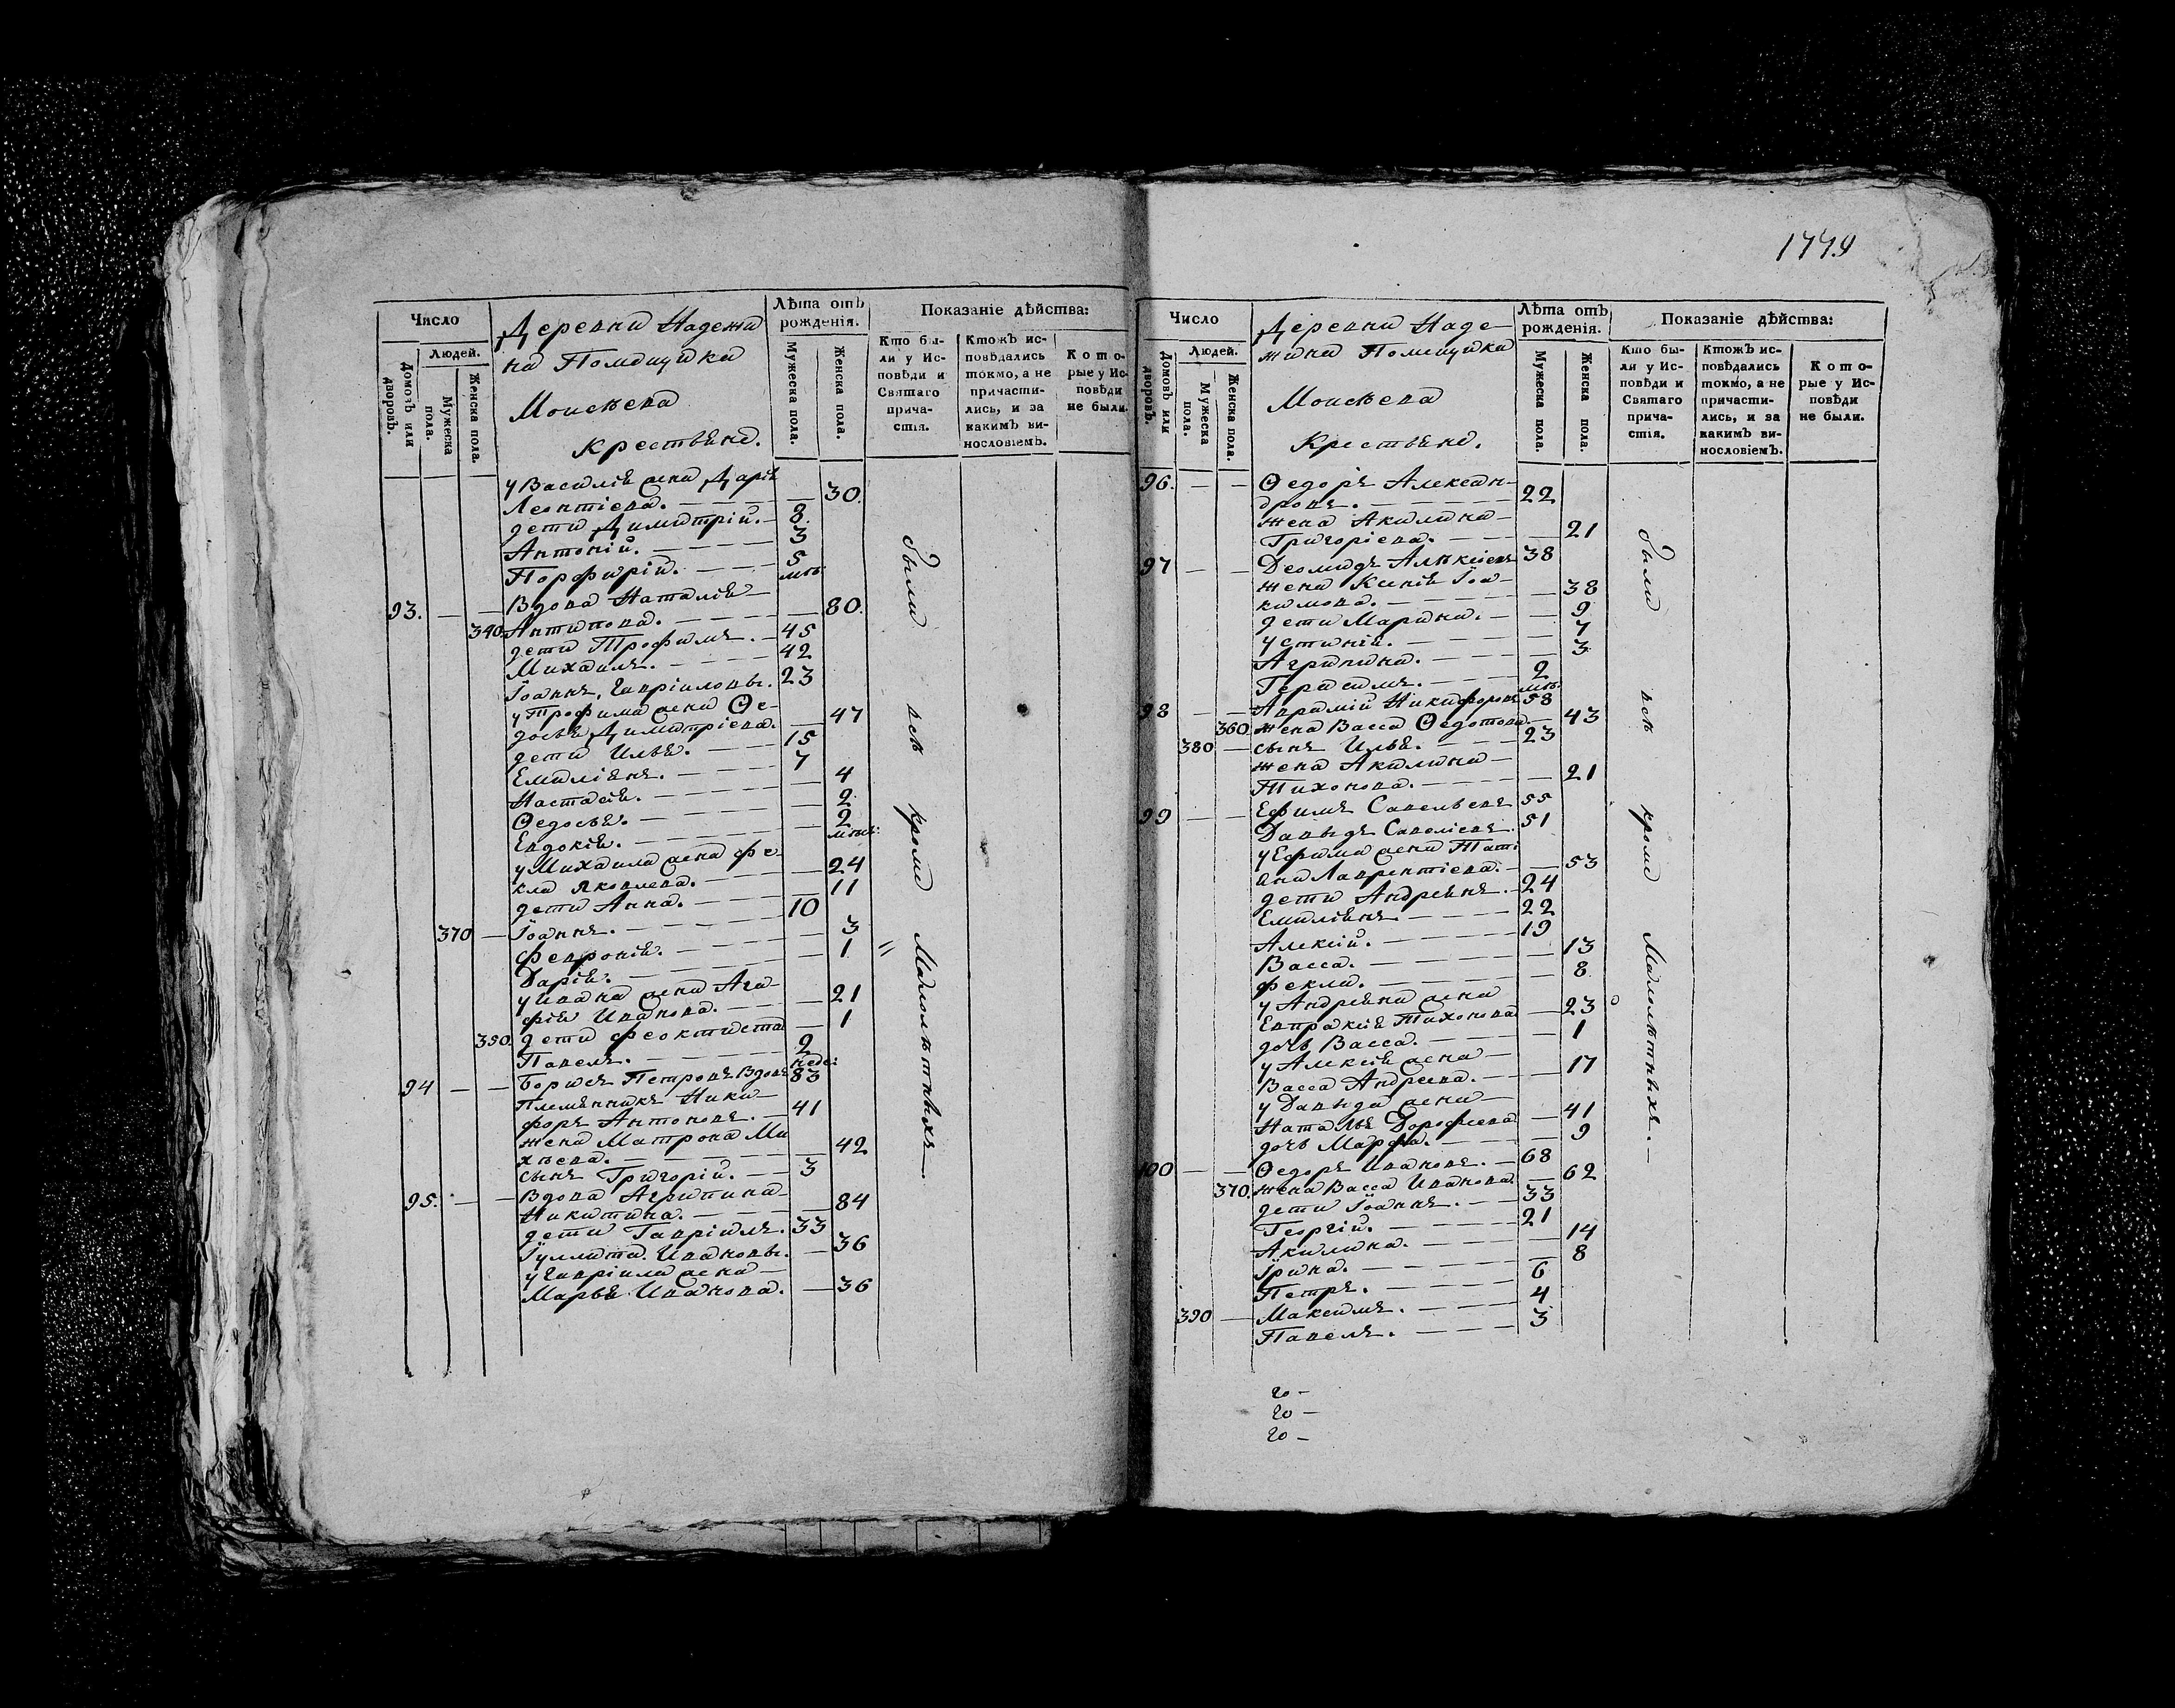 1779
Число
Людей.
Домовъ или дворовъ.
Мужеска пола.
Женска пола.
Деревни Надежи
на Помещика
Моисѣева
крестьяне.
Лѣта отъ рожденія.
Мужеска пола.
Женска пола.
Показаніе дѣйства:
Кто бы-
ли у Ис-
повѣди и
Святаго
прича-
стія.
Ктожъ ис-
повѣдались
токмо, а не
причасти-
лись, и за
какимъ ви-
нословіемъ.
Кото-
рые у Ис-
повѣди
не были.
у Василія жена Дарія
Леонтіева. 30.
дети Димитрій. 8
Антоній. 3
Порфирій. 5 мѣс:
93. Вдова Наталія
340. Антипова. 80.
дети Трофимъ. 45
Михаилъ. 42
Іоаннъ, Гавріиловы. 23
у Трофима жена Ѳе-
досья Димитріева. 47
дети Илья. 15
Емиліянъ. 7
Настасія. 4
Ѳедосья. 2
Евдокія. 2 мѣсе:
у Михаила жена Фе-
кла Яковлева. 24
дети Анна. 11
370 Іоаннъ. 10
Февронія. 3
Дарія. 1
у Ивана жена Ага-
фія Иванова. 21
350. дети Феоктиста 1
Павелъ. 2 неде:
94 Борисъ Петровъ Вдовъ 83
Племянникъ Ники-
форъ Антоновъ. 41
жена Матрона Ми
хѣева. 42
сынъ Григорій. 3
95. Вдова Агрипина
Никитина. 84
дети Гавріилъ. 33
Іулита Ивановы. 36
у Гавріила жена
Марья Иванова. 36
были всѣ кроме Малолѣтныхъ.
Число
Людей.
Домовъ или дворовъ.
Мужеска пола.
Женска пола.
Деревни Наде-
жина Помещика
Моисѣева
Крестьяне.
Лѣта отъ рожденія.
Мужеска пола.
Женска пола.
Показаніе дѣйства:
Кто бы-
ли у Ис-
повѣди и
Святаго
прича-
стія.
Ктожъ ис-
повѣдались
токмо, а не
причасти-
лись, и за
какимъ ви-
нословіемъ.
Кото-
рые у Ис-
повѣди
не были.
96. Ѳедоръ Алексан-
дровъ. 22
жена Акилина
Григоріева. 21
97 Деомидъ Алѣксіевъ 38
жена Ксенія Іоа-
кимова. 38
дети Марина. 9
Устинія. 7
Агрипина. 3
Герасимъ. 2 мѣс:
98 Аврамій Никифоровъ 58
360. жена Васса Ѳедотова 43
380 сынъ Илья. 23
жена Акилина
Тихонова. 21
99 Ефимъ Савельевъ 55
Давыдъ Савеліевъ 51
у Ефима жена Таті
ана Лаврентіева. 53
дети Андреянъ. 24
Емиліянъ 22
Алексій. 19
Васса. 13
Фекла. 8
у Андреяна жена
Евпраксія Тихонова 23
дочь Васса. 1
у Алексія жена
Васса Андреева. 17
у Давыда жена
Наталья Дорофеева 41
дочь Марфа. 9
100 Ѳедоръ Ивановъ. 68
370. жена Васса Иванова 62
дети Іоаннъ. 33
Георгій. 21
Акилина. 14
Ірина. 8
Петръ. 6
390 Максимъ. 4
Павелъ. 3
были всѣ кроме Малолѣтныхъ.
20 –
20 –
20 –